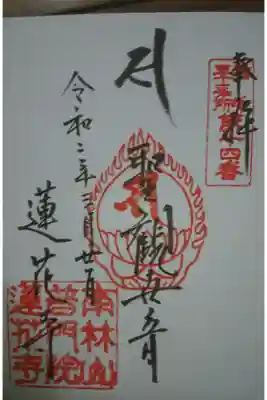 奉拝
第四番
聖観世音
令和二年三月
蓮花寺
南林山
普門院
蓮花寺